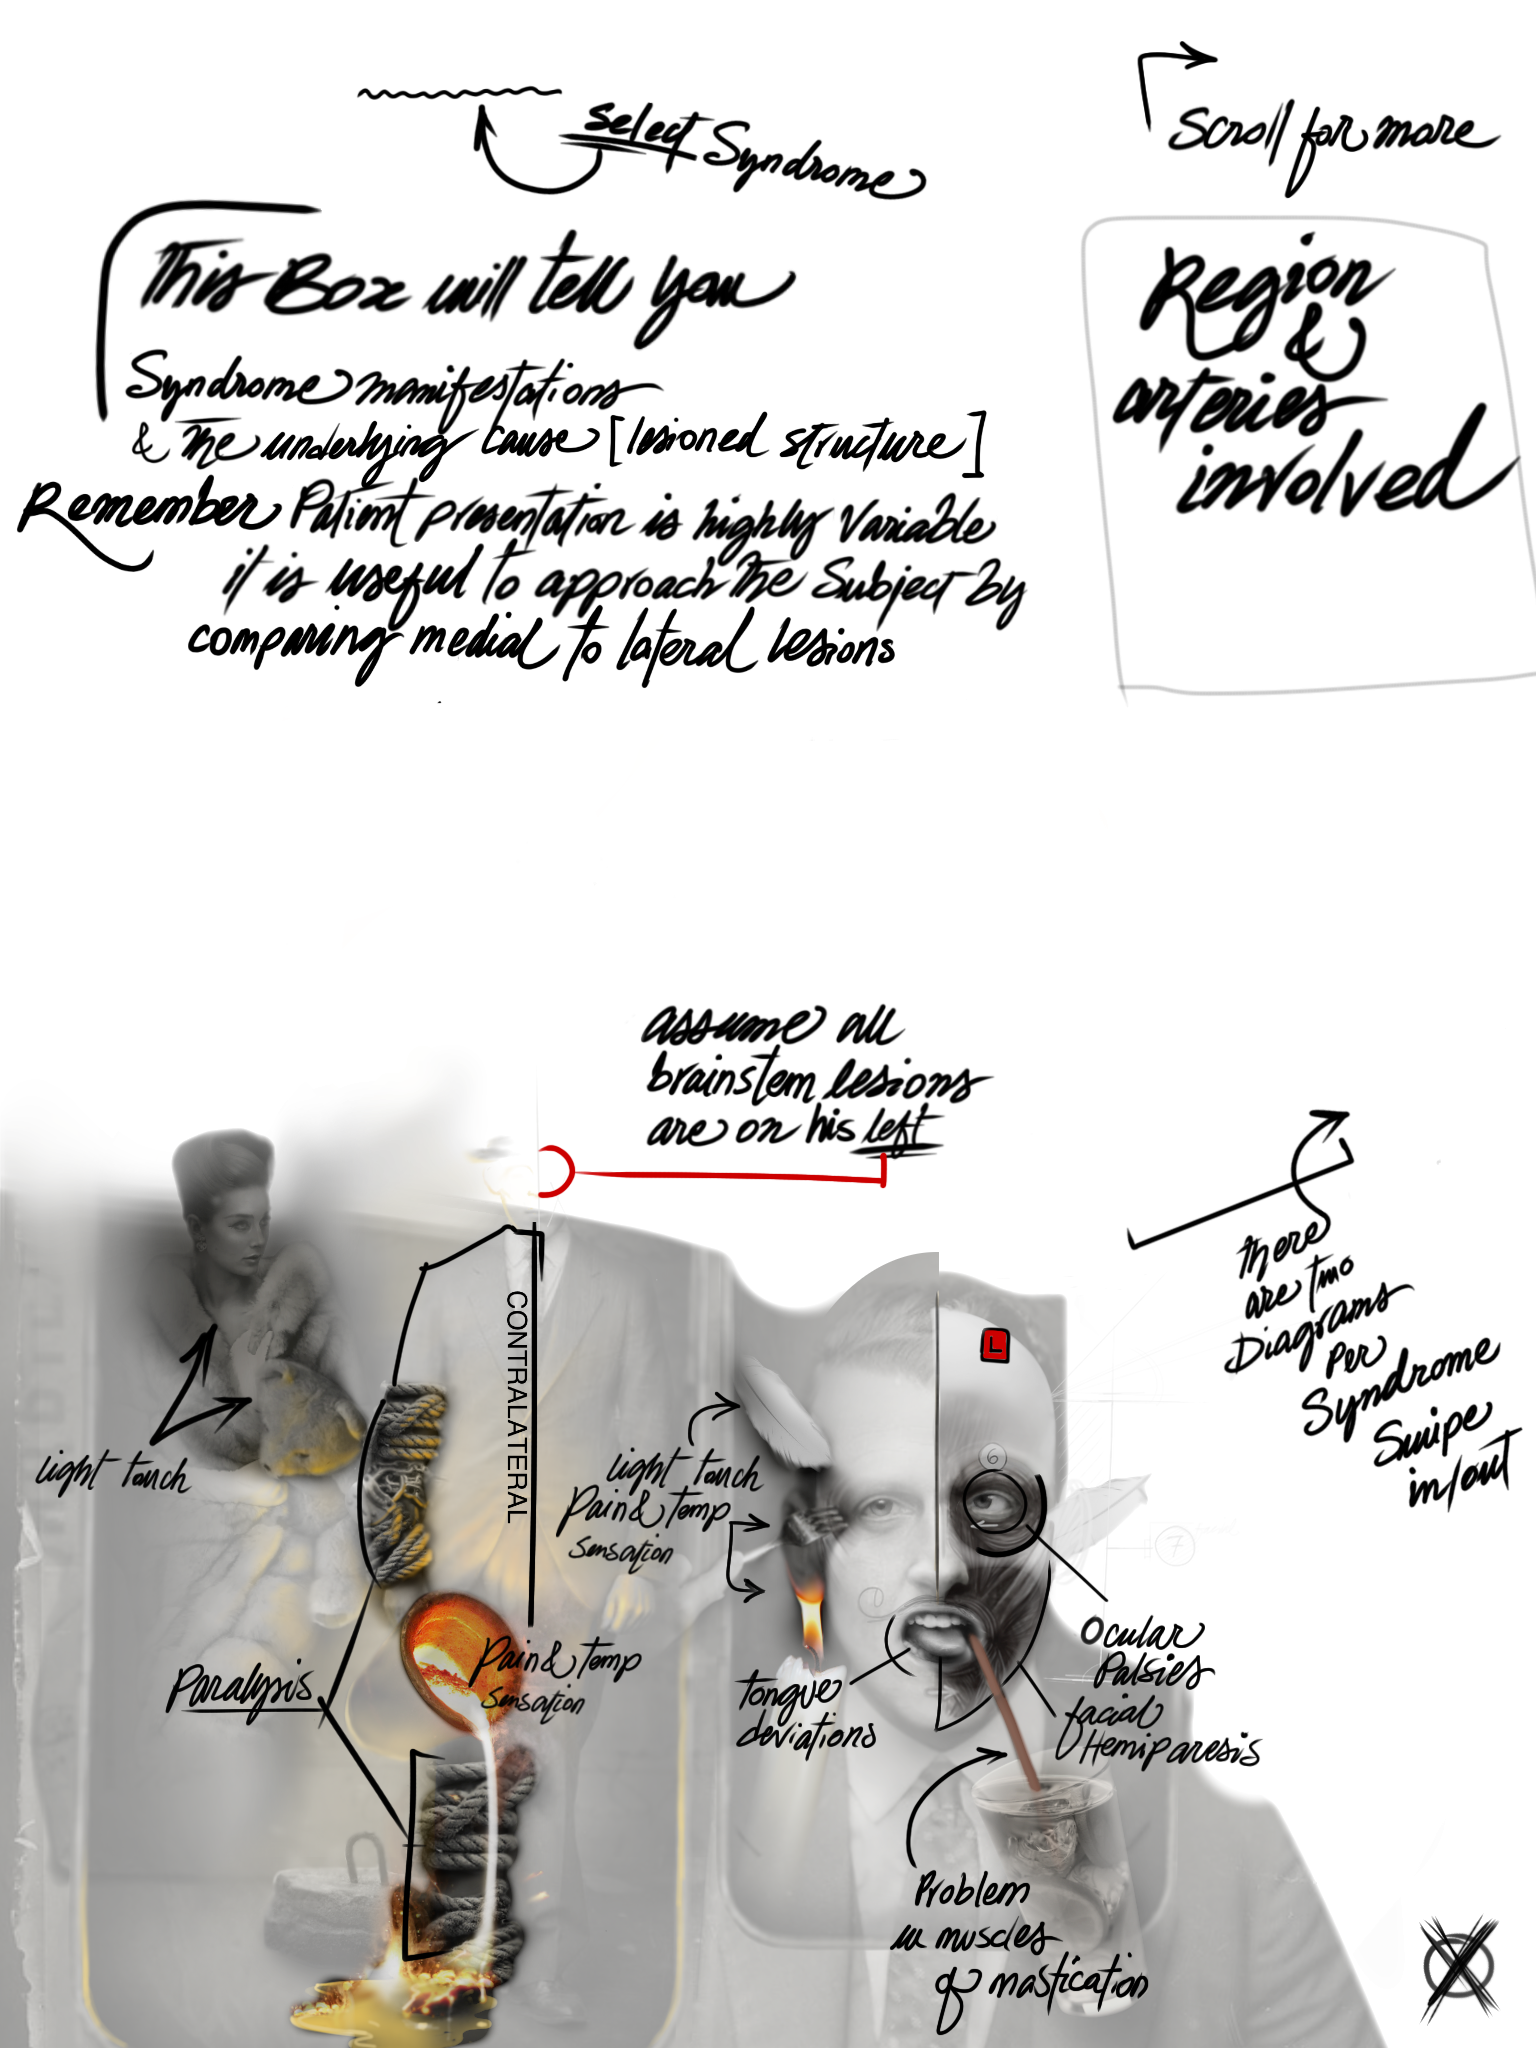 Select Syndrome
Scroll for more
This Box will tell you
Syndrome manifestations
& the underlying cause [lesioned structure]
Remember Patient presentation is highly variable
it is useful to approach the Subject by
comparing medial to lateral lesions
Region
&
arteries
involved
assume all
brainstem lesions
are on his left
there
are two
Diagrams
Per
Syndrome
Swipe
in/out
CONTRALATERAL
L
6
7
light touch
light touch
Pain & Temp
Sensation
Paralysis
Pain & Temp
Sensation
tongue
deviations
Ocular
Palsies
facial
Hemiparesis
Problem
in muscles
of mastication